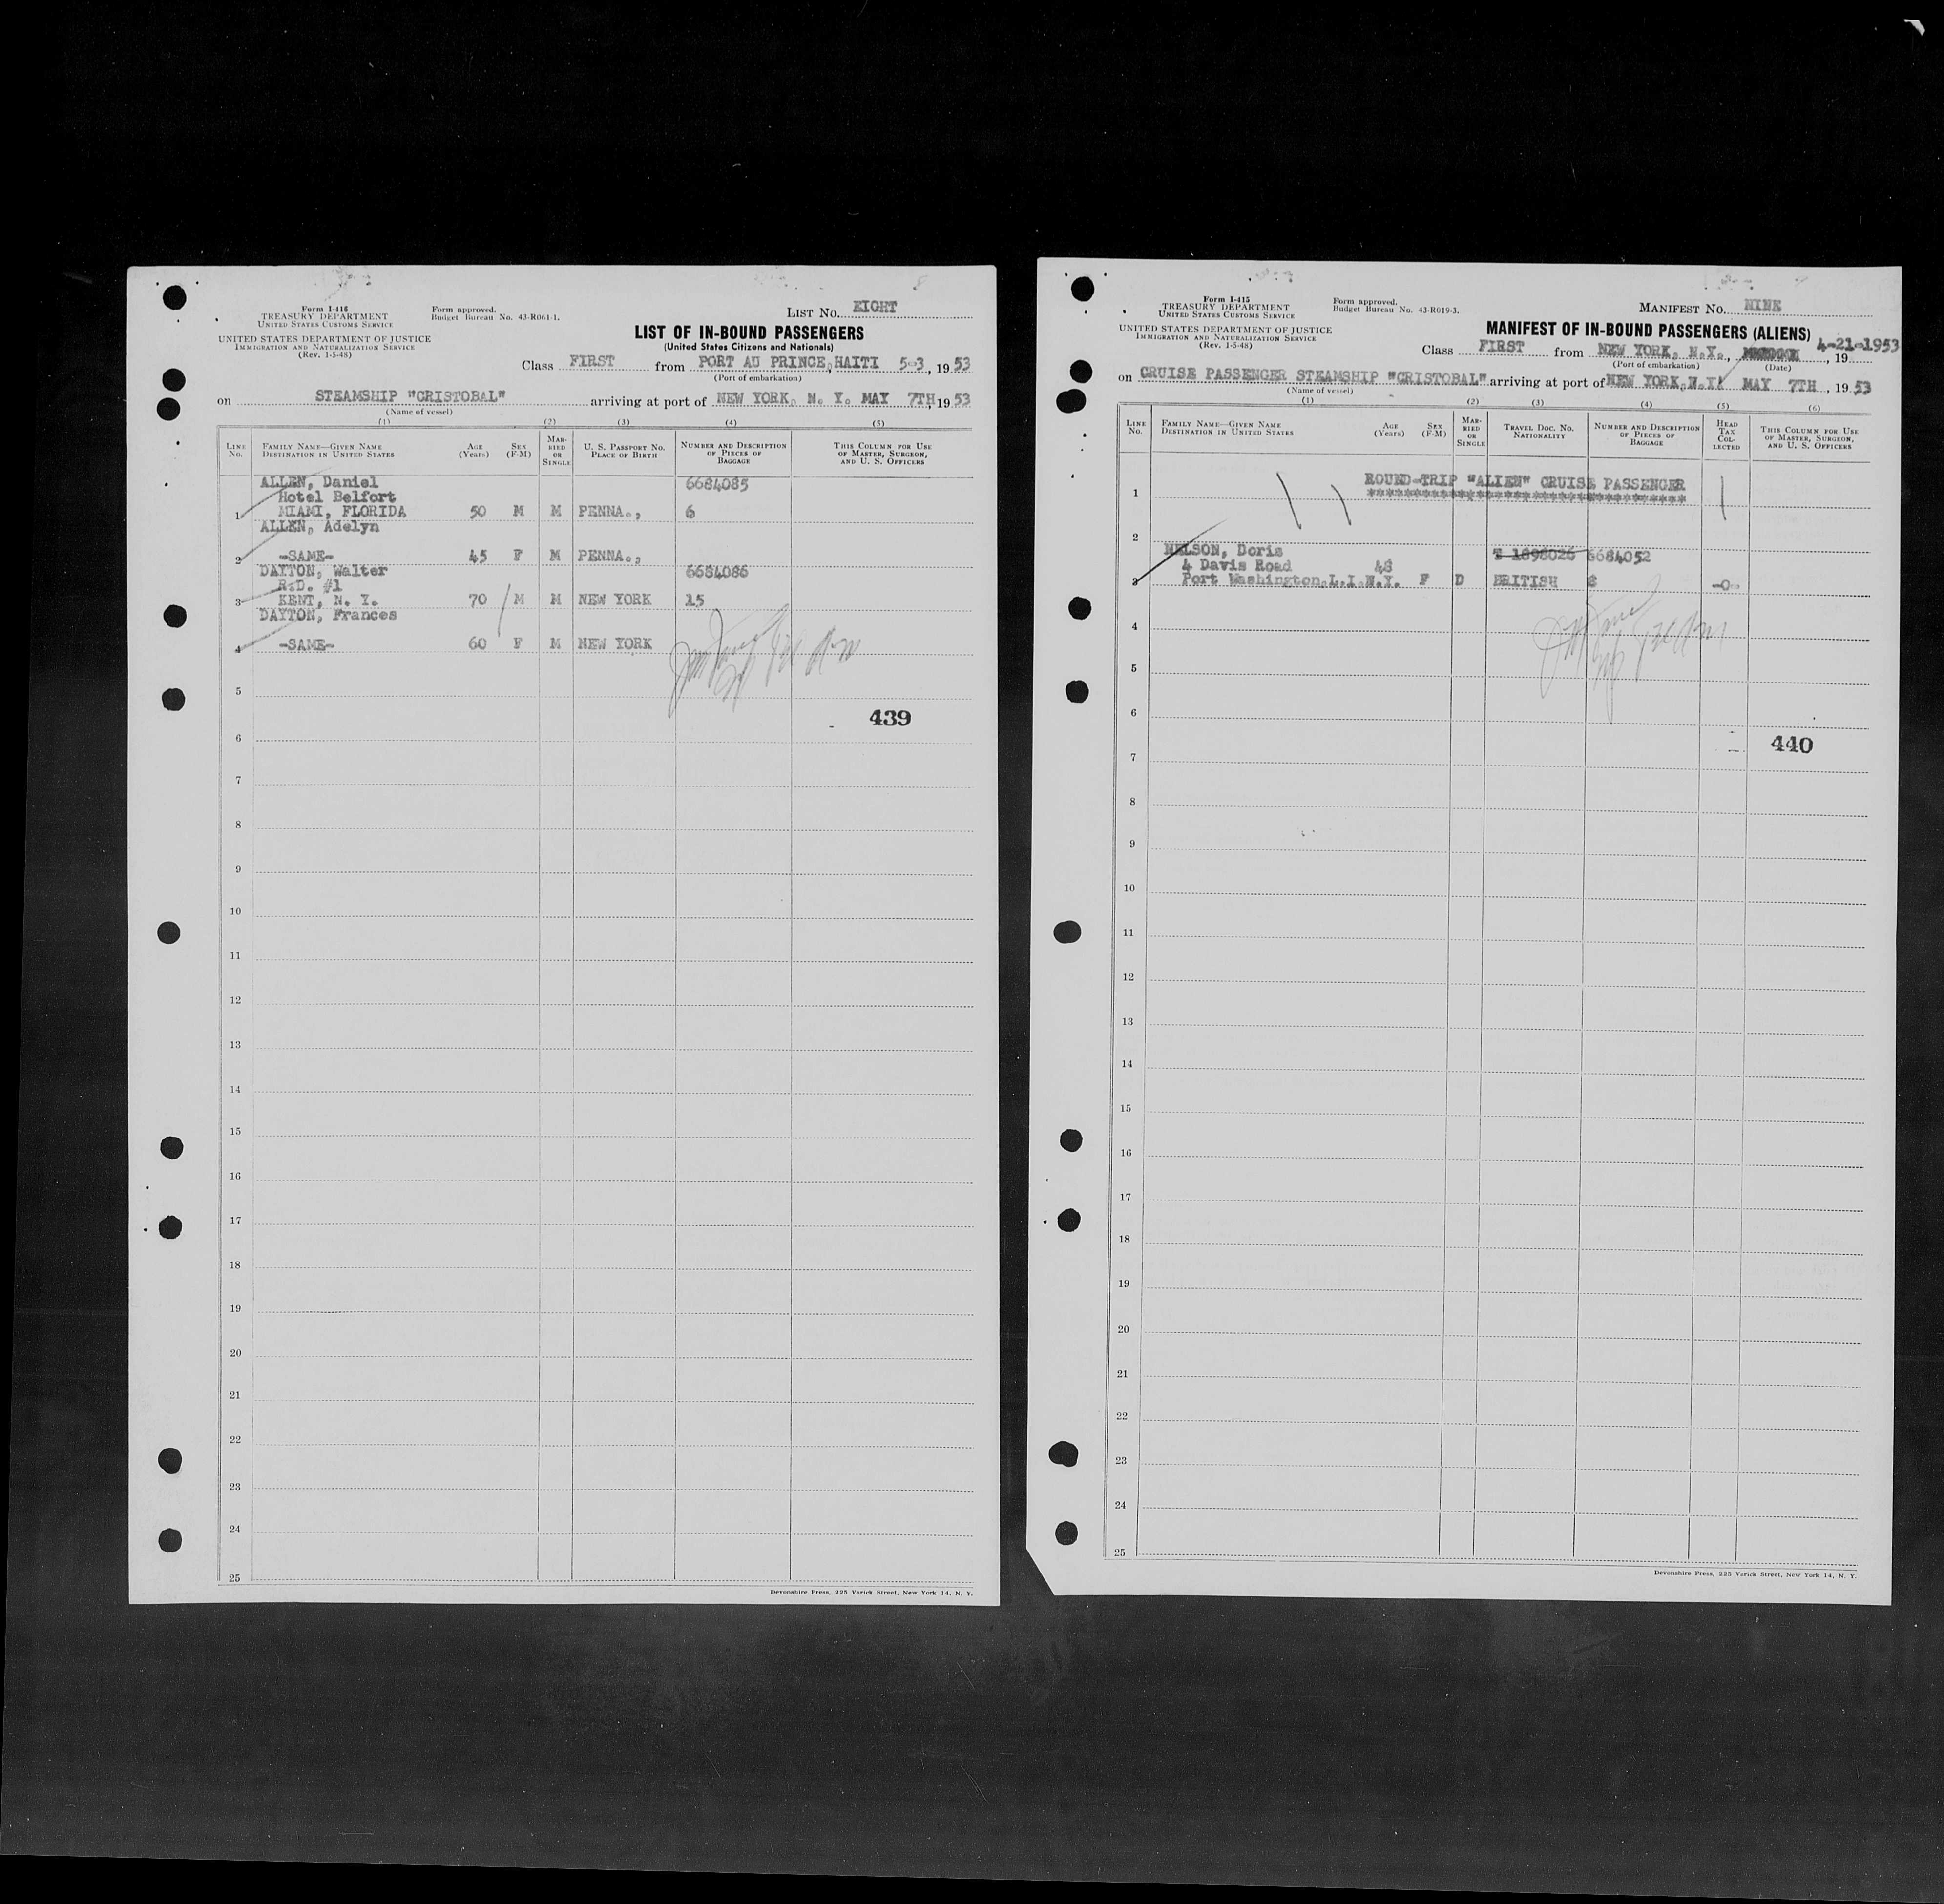 Form I-416
TREASURY DEPARTMENT
UNITED STATES CUSTOMS SERVICE
UNITED STATES DEPARTMENT OF JUSTICE
IMMIGRATION AND NATURALIZATION SERVICE
(Rev. 1-5-48)
Form approved.
Budget Bureau No. 43-R061-1.
LIST No. EIGHT
LIST OF IN-BOUND PASSENGERS
(United States Citizens and Nationals)
Class FIRST from PORT AU PRINCE, HAITI 5-3, 1953
(Port of embarkation)
on STEAMSHIP "CRISTOBAL" arriving at port of NEW YORK, N. Y. MAY 7TH, 1953
(Name of vessel)
(1) (2) (3) (4) (5)
LINE No. FAMILY NAME—GIVEN NAME DESTINATION IN UNITED STATES AGE (Years) SEX (F-M) MARRIED OR SINGLE U. S. PASSPORT NO. PLACE OF BIRTH NUMBER AND DESCRIPTION OF PIECES OF BAGGAGE THIS COLUMN FOR USE OF MASTER, SURGEON, AND U. S. OFFICERS
ALLEN, Daniel 6684085
Hotel Belfort
1 MIAMI, FLORIDA 50 M M PENNA., 6
ALLEN, Adelyn
2 -SAME- 45 F M PENNA.,
DAYTON, Walter 6684086
R.D. #1
3 KENT, N. Y. 70 M M NEW YORK 15
DAYTON, Frances
4 -SAME- 60 F M NEW YORK
5
439
6
7
8
9
10
11
12
13
14
15
16
17
18
19
20
21
22
23
24
25
Devonshire Press, 225 Varick Street, New York 14, N. Y.
Form I-415
TREASURY DEPARTMENT
UNITED STATES CUSTOMS SERVICE
UNITED STATES DEPARTMENT OF JUSTICE
IMMIGRATION AND NATURALIZATION SERVICE
(Rev. 1-5-48)
Form approved.
Budget Bureau No. 43-R019-3.
MANIFEST No. NINE
MANIFEST OF IN-BOUND PASSENGERS (ALIENS)
Class FIRST from NEW YORK, N.Y., 4-21-1953, 19
(Port of embarkation) (Date)
on CRUISE PASSENGER STEAMSHIP "CRISTOBAL" arriving at port of NEW YORK, N.Y. MAY 7TH, 1953
(Name of vessel)
(1) (2) (3) (4) (5) (6)
LINE No. FAMILY NAME—GIVEN NAME DESTINATION IN UNITED STATES AGE (Years) SEX (F-M) MARRIED OR SINGLE TRAVEL DOC. NO. NATIONALITY NUMBER AND DESCRIPTION OF PIECES OF BAGGAGE HEAD TAX COLLECTED THIS COLUMN FOR USE OF MASTER, SURGEON, AND U. S. OFFICERS
ROUND-TRIP "ALIEN" CRUISE PASSENGER
1 ********************************
2
NELSON, Doris T 1898026 6684052
4 Davis Road 48
3 Port Washington, L.I. N.Y. F D BRITISH -0-
4
5
6
440
7
8
9
10
11
12
13
14
15
16
17
18
19
20
21
22
23
24
25
Devonshire Press, 225 Varick Street, New York 14, N. Y.